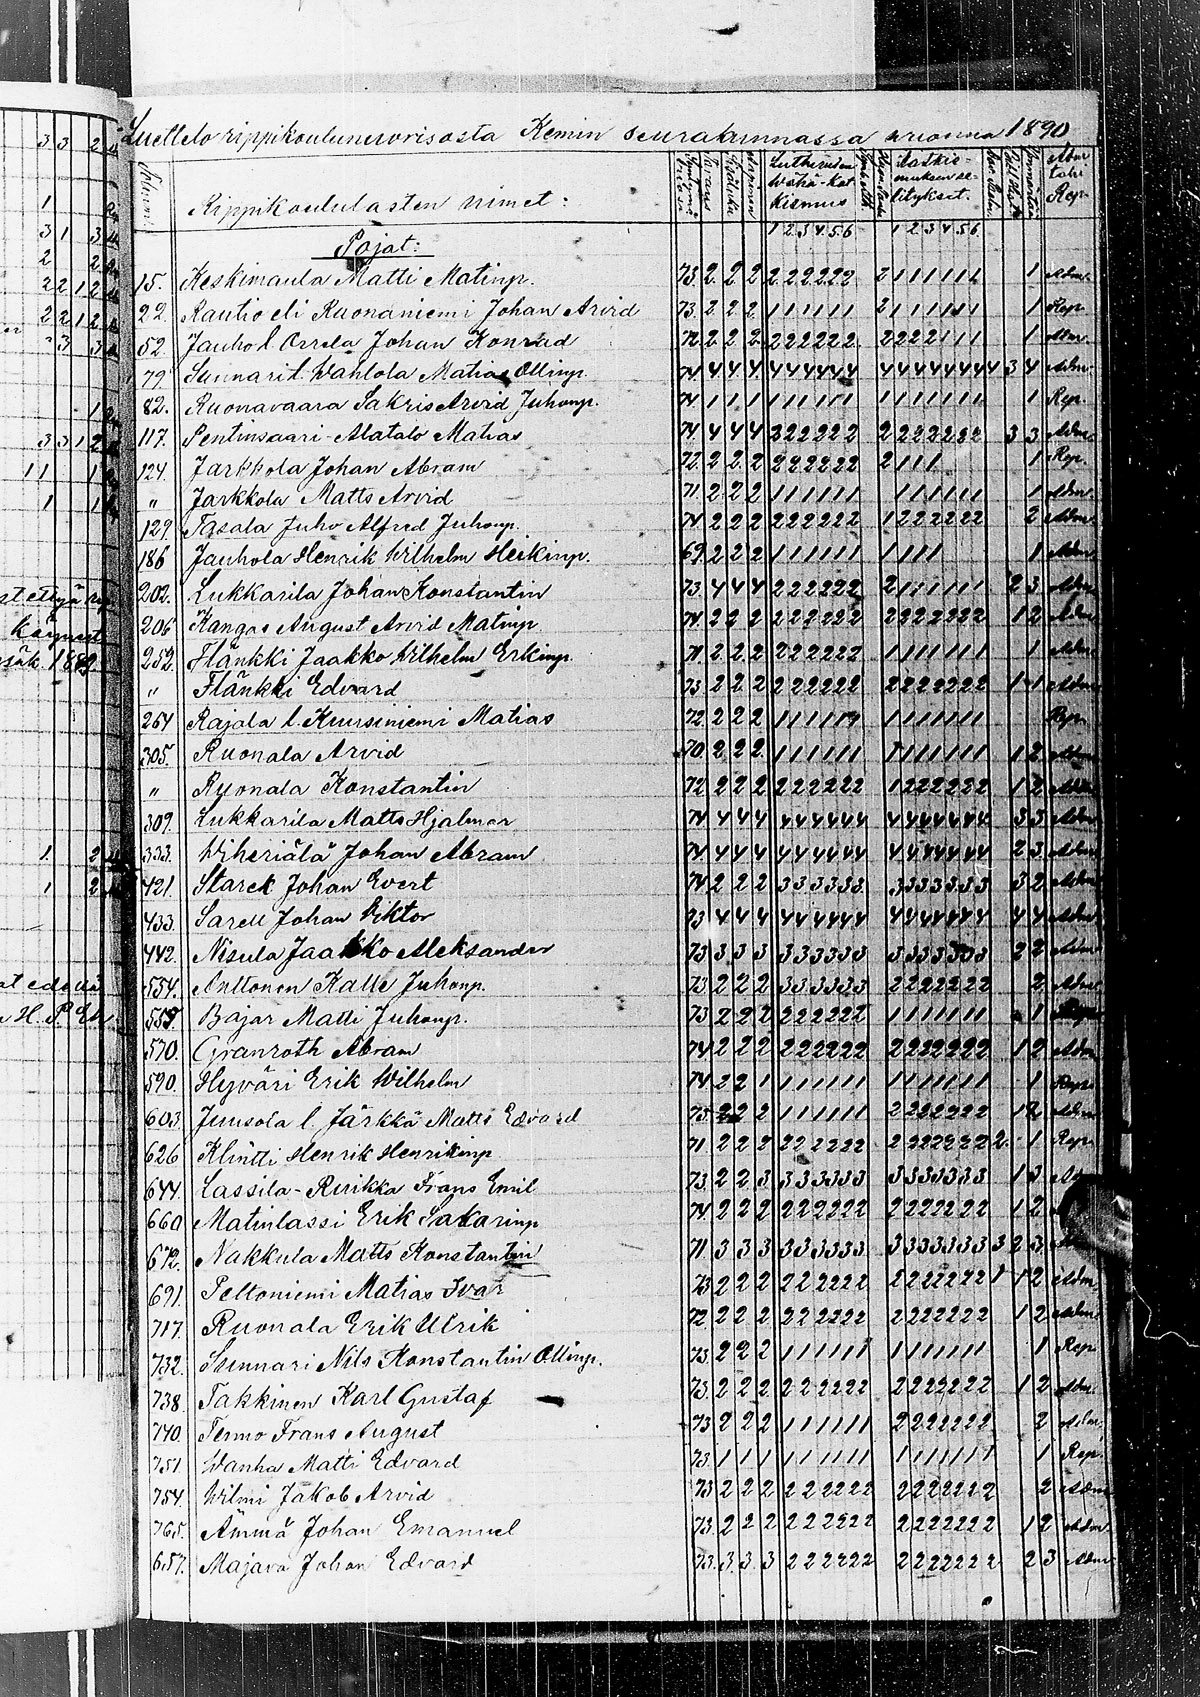 Luettelo rippikoulunuorisosta Kemin seurakunnassa vuonna 1890
Rippikoululasten nimet: Lutheruksen Vähä-Katkismus 1 2 3 4 5 6 1 2 3 4 5 6 Adm tahi Rep.
Pojat:
15. Keskimaula Matti Matinp. 73. 2 2 2 2 2 2 2 2 2 2 1 1 1 1 1 1 1 Adm.
22. Rautio eli Ruonaniemi Johan Arvid 73. 2 2 2 1 1 1 1 1 1 2 1 1 1 1 1 1 1 Rep.
52. Jauho l. Orrela Johan Konrad 72 2 2 2 2 2 2 2 2 2 2 2 2 2 1 1 1 1 Adm.
79. Sunnari l. Wanlola Matias Ollinp. 74 4 4 4 4 4 4 4 4 4 4 4 4 4 4 4 4 4 3 4 Adm.
82. Ruonavaara Sakris Arvid Juhonp. 74 1 1 1 1 1 1 1 1 1 1 1 1 1 1 1 1 1 Rep.
117. Pentinsaari-Alatalo Matias 74 4 4 4 2 2 2 2 2 2 2 2 2 2 2 2 2 3 3 Adm.
124. Jarkkola Johan Abram 72 2 2 2 2 2 2 2 2 2 2 1 1 1 1 Rep.
" Jarkkola Matts Arvid 71 2 2 2 1 1 1 1 1 1 1 1 1 1 1 1 1 Adm.
129. Tasala Juho Alfred Juhonp. 74 2 2 2 2 2 2 2 2 2 1 2 2 2 2 2 2 2 Adm.
186 Jauhola Henrik Wilhelm Heikinp. 69. 2 2 2 1 1 1 1 1 1 1 1 1 1 1 Adm
202. Lukkarila Johan Konstantin 73 4 4 4 2 2 2 2 2 2 2 1 1 1 1 1 1 2 3 Adm
206 Kangas August Arvid Matinp 74 2 2 2 2 2 2 2 2 2 2 2 2 2 2 2 2 1 2 Adm
252. Flänkki Jaakko Wilhelm Erkinp. 71 2 2 2 2 2 2 2 2 2 1 1 1 1 1 1 1 1 Adm
" Flänkki Edvard 73. 2 2 2 2 2 2 2 2 2 2 2 2 2 2 2 2 1 1 Adm
264 Rajala l. Kuursiniemi Matias 72 2 2 2 1 1 1 1 1 1 1 1 1 1 1 1 1 Rep.
305. Ruonala Arvid 70. 2 2 2 1 1 1 1 1 1 1 1 1 1 1 1 1 1 2 Adm
" Ruonala Konstantin 72 2 2 2 2 2 2 2 2 2 1 2 2 2 2 2 2 1 2 Adm
309. Lukkarila Matts Hjalmar 74 4 4 4 4 4 4 4 4 4 4 4 4 4 4 4 4 3 3 Adm.
333. Wiheriälä Johan Abram 74 4 4 4 4 4 4 4 4 4 4 4 4 4 4 4 4 2 3 Adm
421. Starck Johan Evert 74 2 2 2 3 3 3 3 3 3 3 3 3 3 3 3 3 3 2 Adm
433. Sarell Johan Viktor 73 4 4 4 4 4 4 4 4 4 4 4 4 4 4 4 4 4 4 Adm
442. Nisula Jaakko Aleksander 73 3 3 3 3 3 3 3 3 3 3 3 3 3 3 3 3 2 2 Adm
554. Anttonen Kalle Juhonp. 73 2 2 2 3 3 3 3 3 3 2 2 2 2 2 2 2 2 Adm
555. Bajar Matti Juhonp. 73 2 2 2 2 2 2 2 2 2 1 1 1 1 1 1 1 1 Rep
570. Granroth Abram 74 2 2 2 2 2 2 2 2 2 2 2 2 2 2 2 2 1 2 Adm
590. Hyväri Erik Wilhelm 74 2 2 1 1 1 1 1 1 1 1 1 1 1 1 1 1 1 Rep.
603. Juusola l. Järkkä Matts Edvard 75 2 2 2 1 1 1 1 1 1 2 2 2 2 2 2 2 1 2 Adm
626 Klintti Henrik Henrikinp 71 2 2 2 2 2 2 2 2 2 2 2 2 2 2 2 2 2 1 Rep.
644. Lassila-Ruikka Frans Emil 73. 2 2 3 3 3 3 3 3 3 3 3 3 3 3 3 3 1 3
660 Matinlassi Erik Sakarinp 74. 2 2 2 2 2 2 2 2 2 2 2 2 2 2 2 2 1 2
672. Nakkula Matts Konstantin 71 3 3 3 3 3 3 3 3 3 3 3 3 3 3 3 3 3 2 3
691. Peltoniemi Matias Ivar 73 2 2 2 2 2 2 2 2 2 2 2 2 2 2 2 2 1 1 2 Adm
717. Ruonala Erik Ulrik 72. 2 2 2 2 2 2 2 2 2 2 2 2 2 2 2 2 1 2 Adm
732. Sunnari Nils Konstantin Ollinp. 73. 2 2 2 1 1 1 1 1 1 1 1 1 1 1 1 1 1 Rep
738. Takkinen Karl Gustaf 73. 2 2 2 2 2 2 2 2 2 2 2 2 2 2 2 2 1 2 Adm.
740. Termo Frans August 73 2 2 2 1 1 1 1 1 1 2 2 2 2 2 2 2 2 Adm,
751. Wanha Matti Edvard 73. 1 1 1 1 1 1 1 1 1 1 1 1 1 1 1 1 1 Rep.
754. Wilmi Jakob Arvid 73 2 2 2 2 2 2 2 2 2 2 2 2 2 2 2 2 2 Adm
765. Ämmä Johan Emanuel 73. 2 2 2 2 2 2 2 2 2 2 2 2 2 2 2 2 1 2 Adm
657. Majava Johan Edvard 73. 3 3 3 2 2 2 2 2 2 2 2 2 2 2 2 2 2 3 Adm.